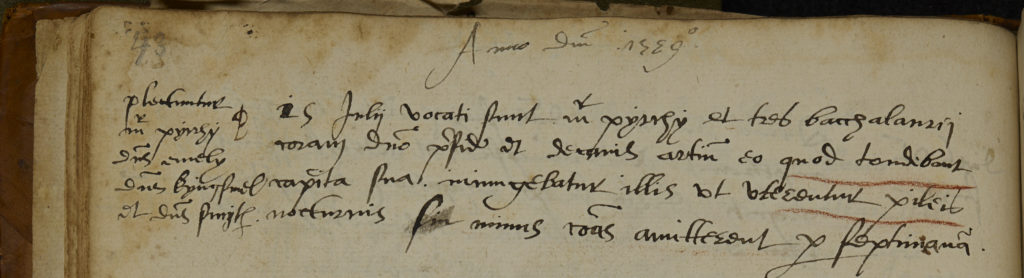 43
Anno dni 1539°
plectuntur
mr pyrrhy
dns emely
dns kynsmel
et dns smyth.
15 Julii vocati sunt mr pyrrhy et tres bacchalaurij
coram dno pside et decanis artium eo quod tondebant
capita sua. iniungebatur illis ut uterentur pileis
nocturnis sin minus coas amitterent p septimana.